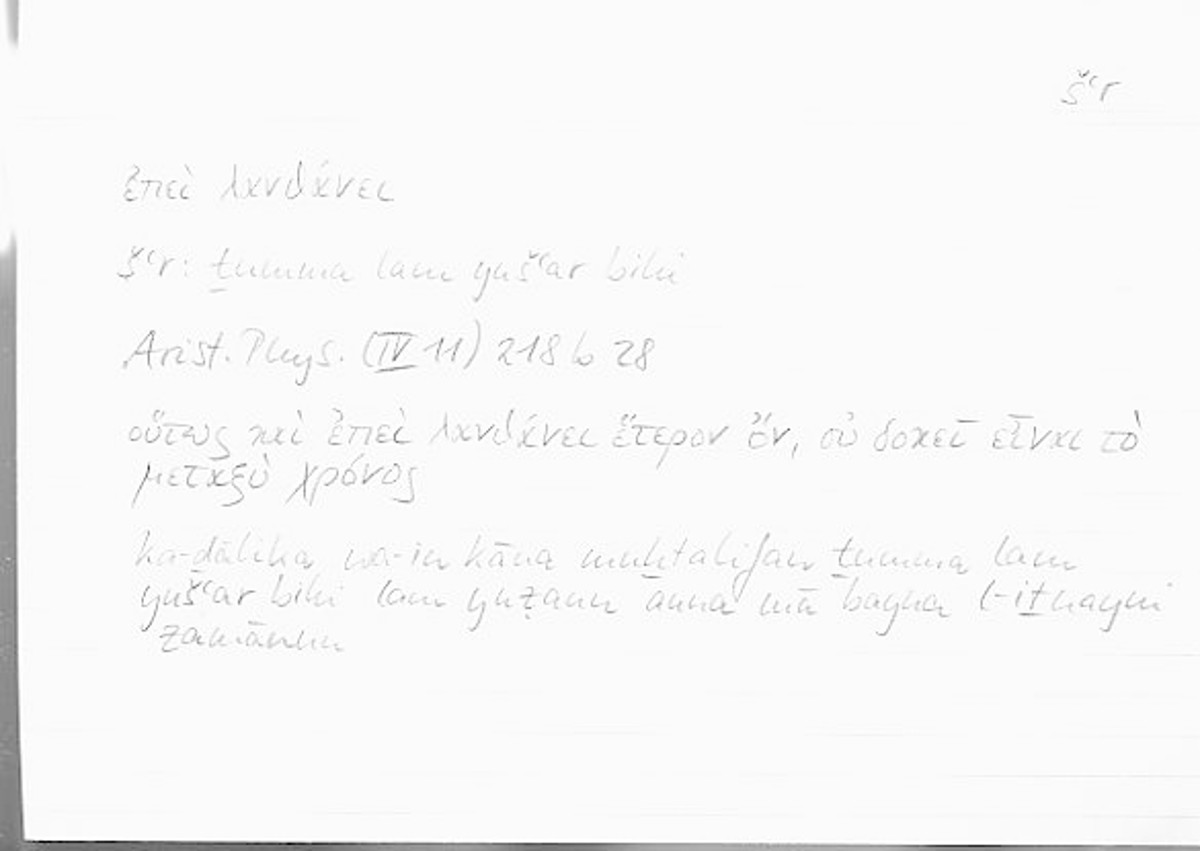 šʿr
ἐπεὶ λανθάνει
šʿr: ṯumma lam yušʿar bihi
Arist. Phys. (IV 11) 218 b 28
οὕτως καὶ ἐπεὶ λανθάνει ἕτερον ὄν, οὐ δοκεῖ εἶναι τὸ
μεταξὺ χρόνος
ka-ḏālika wa-in kāna muḫtalifan ṯumma lam
yušʿar bihi lam yuẓann anna mā bayna l-iṯnayni
zamānun